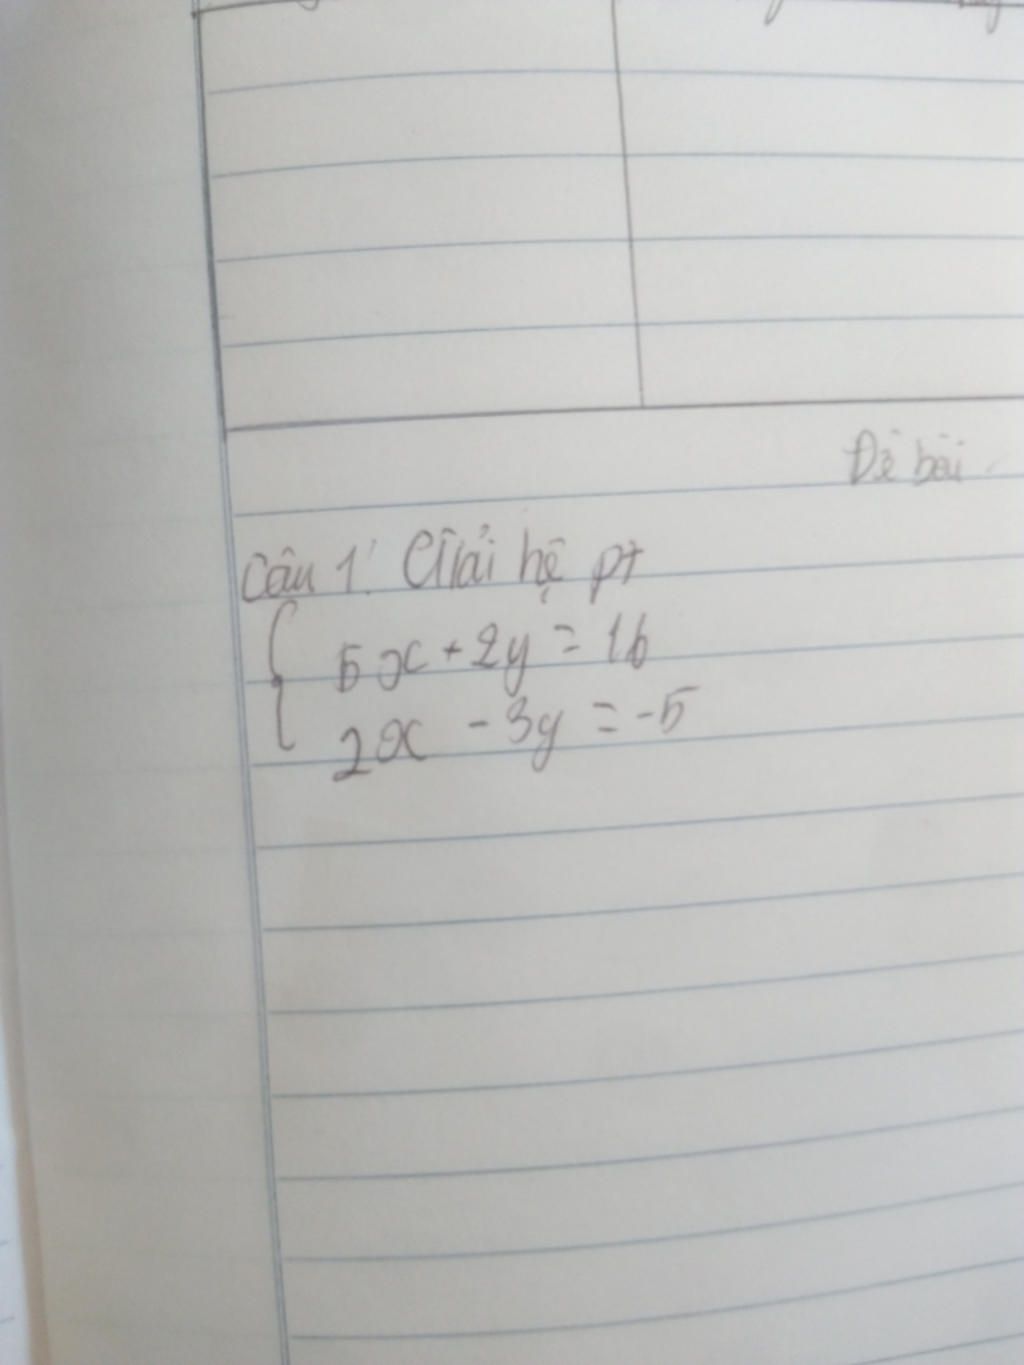 Đề bài
Câu 1: Giải hệ pt
{ 5x + 2y = 16
2x - 3y = -5